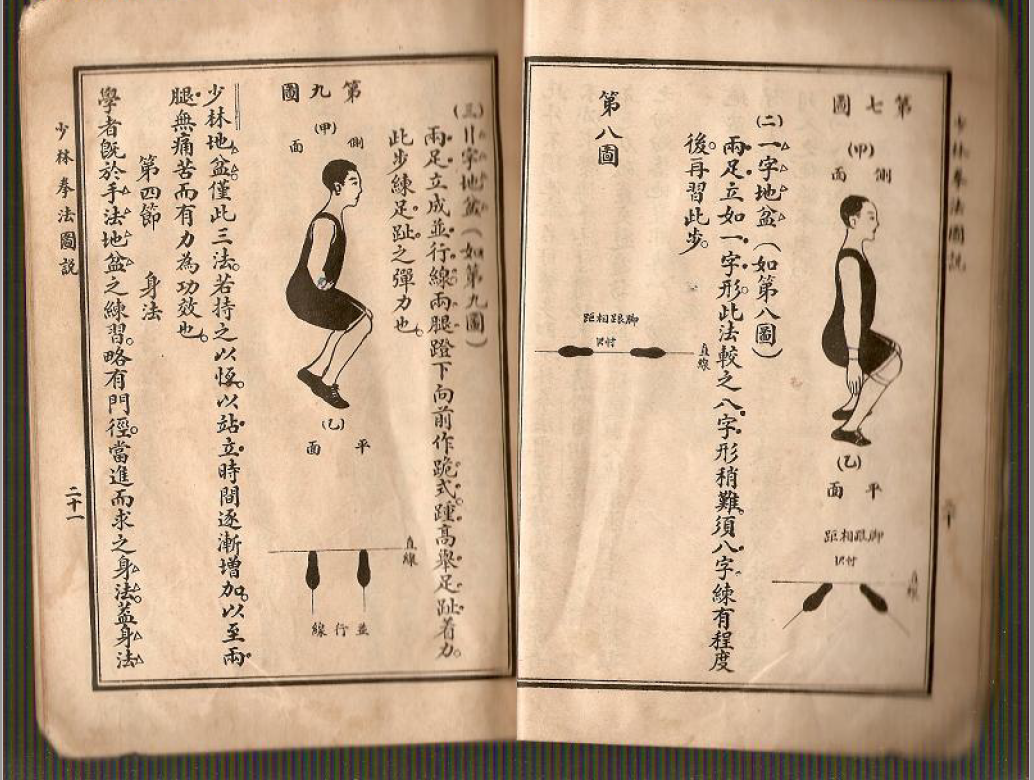 少林拳法圖説
第七圖
(甲)
側面
(乙)
平面
脚跟相距
直線
(二)一字地盆(如第八圖)
兩足立如一字形此法較之八字形稍難須八字練有程度
後再習此步
第八圖
脚跟相距
直線
(三)〢字地盆(如第九圖)
兩足立成並行線兩腿蹬下向前作跪式踵高舉足趾着力
此步練足趾之彈力也
第九圖
(甲)
側面
(乙)
平面
直線
並行線
少林地盆僅此三法若持之以恆以站立時間逐漸增加以至兩
腿無痛苦而有力為功效也
第四節 身法
學者旣於手法地盆之練習略有門徑當進而求之身法蓋身法
少林拳法圖説
二十一